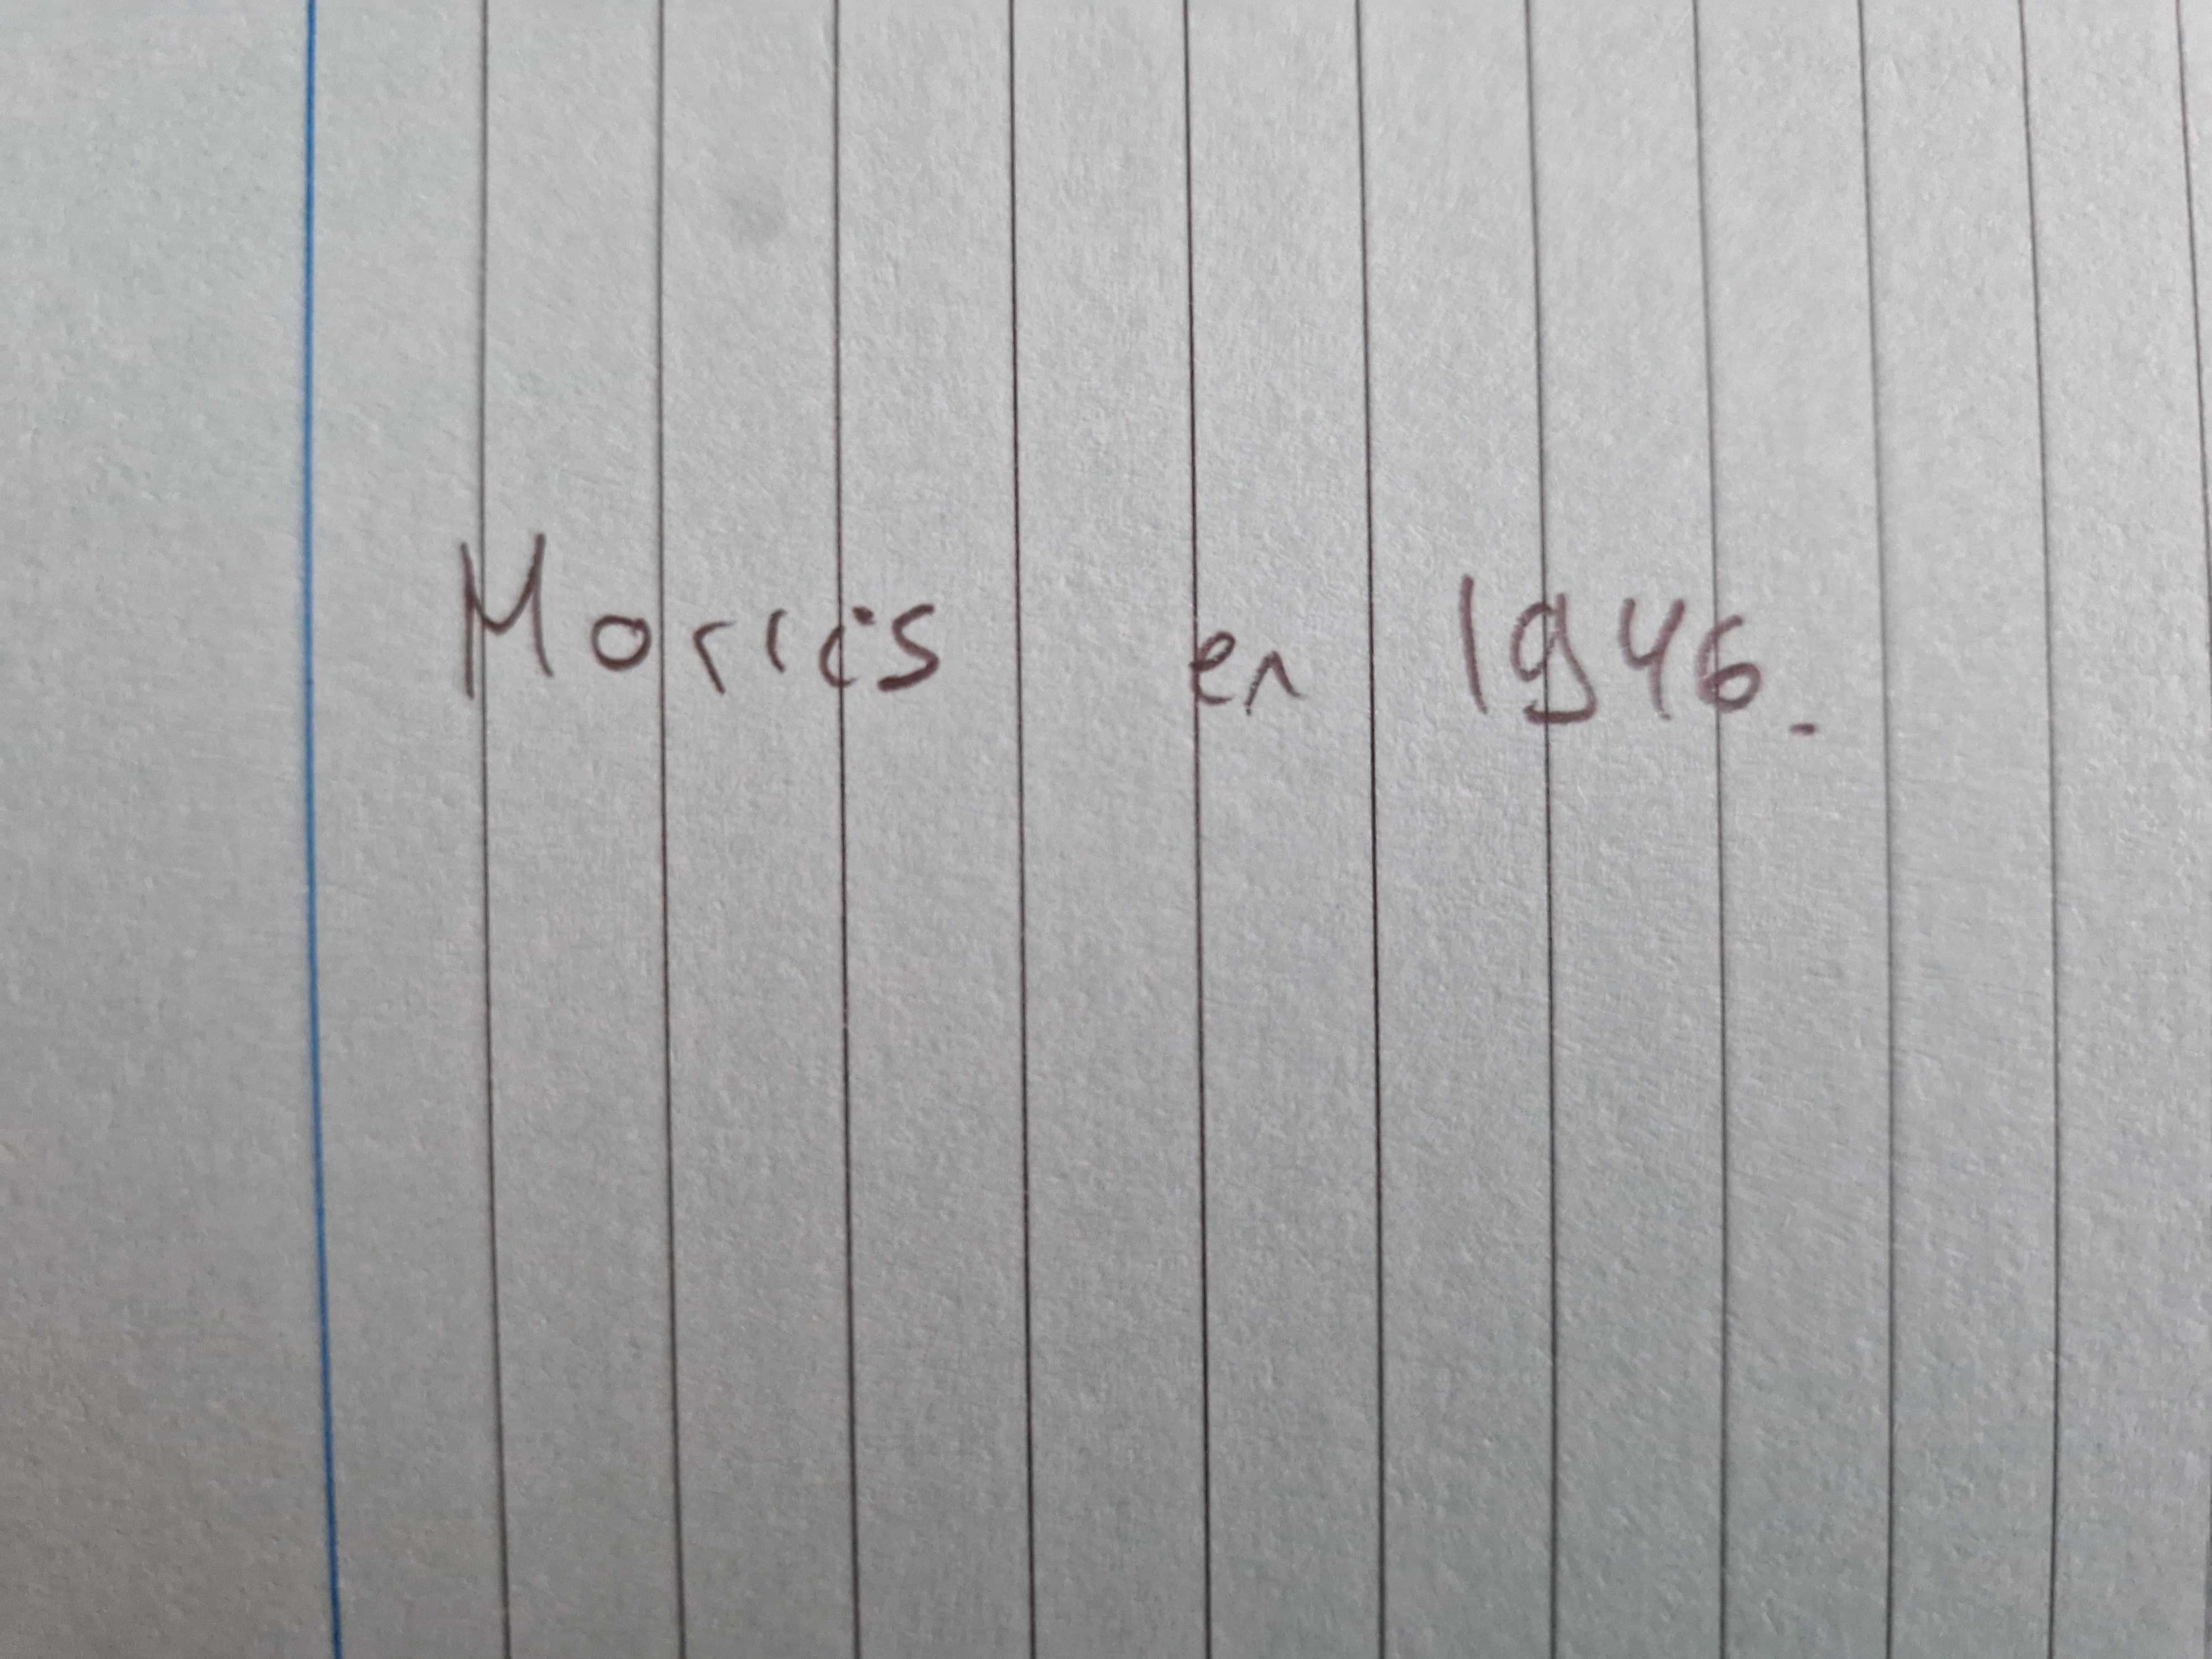 Morris en 1946.